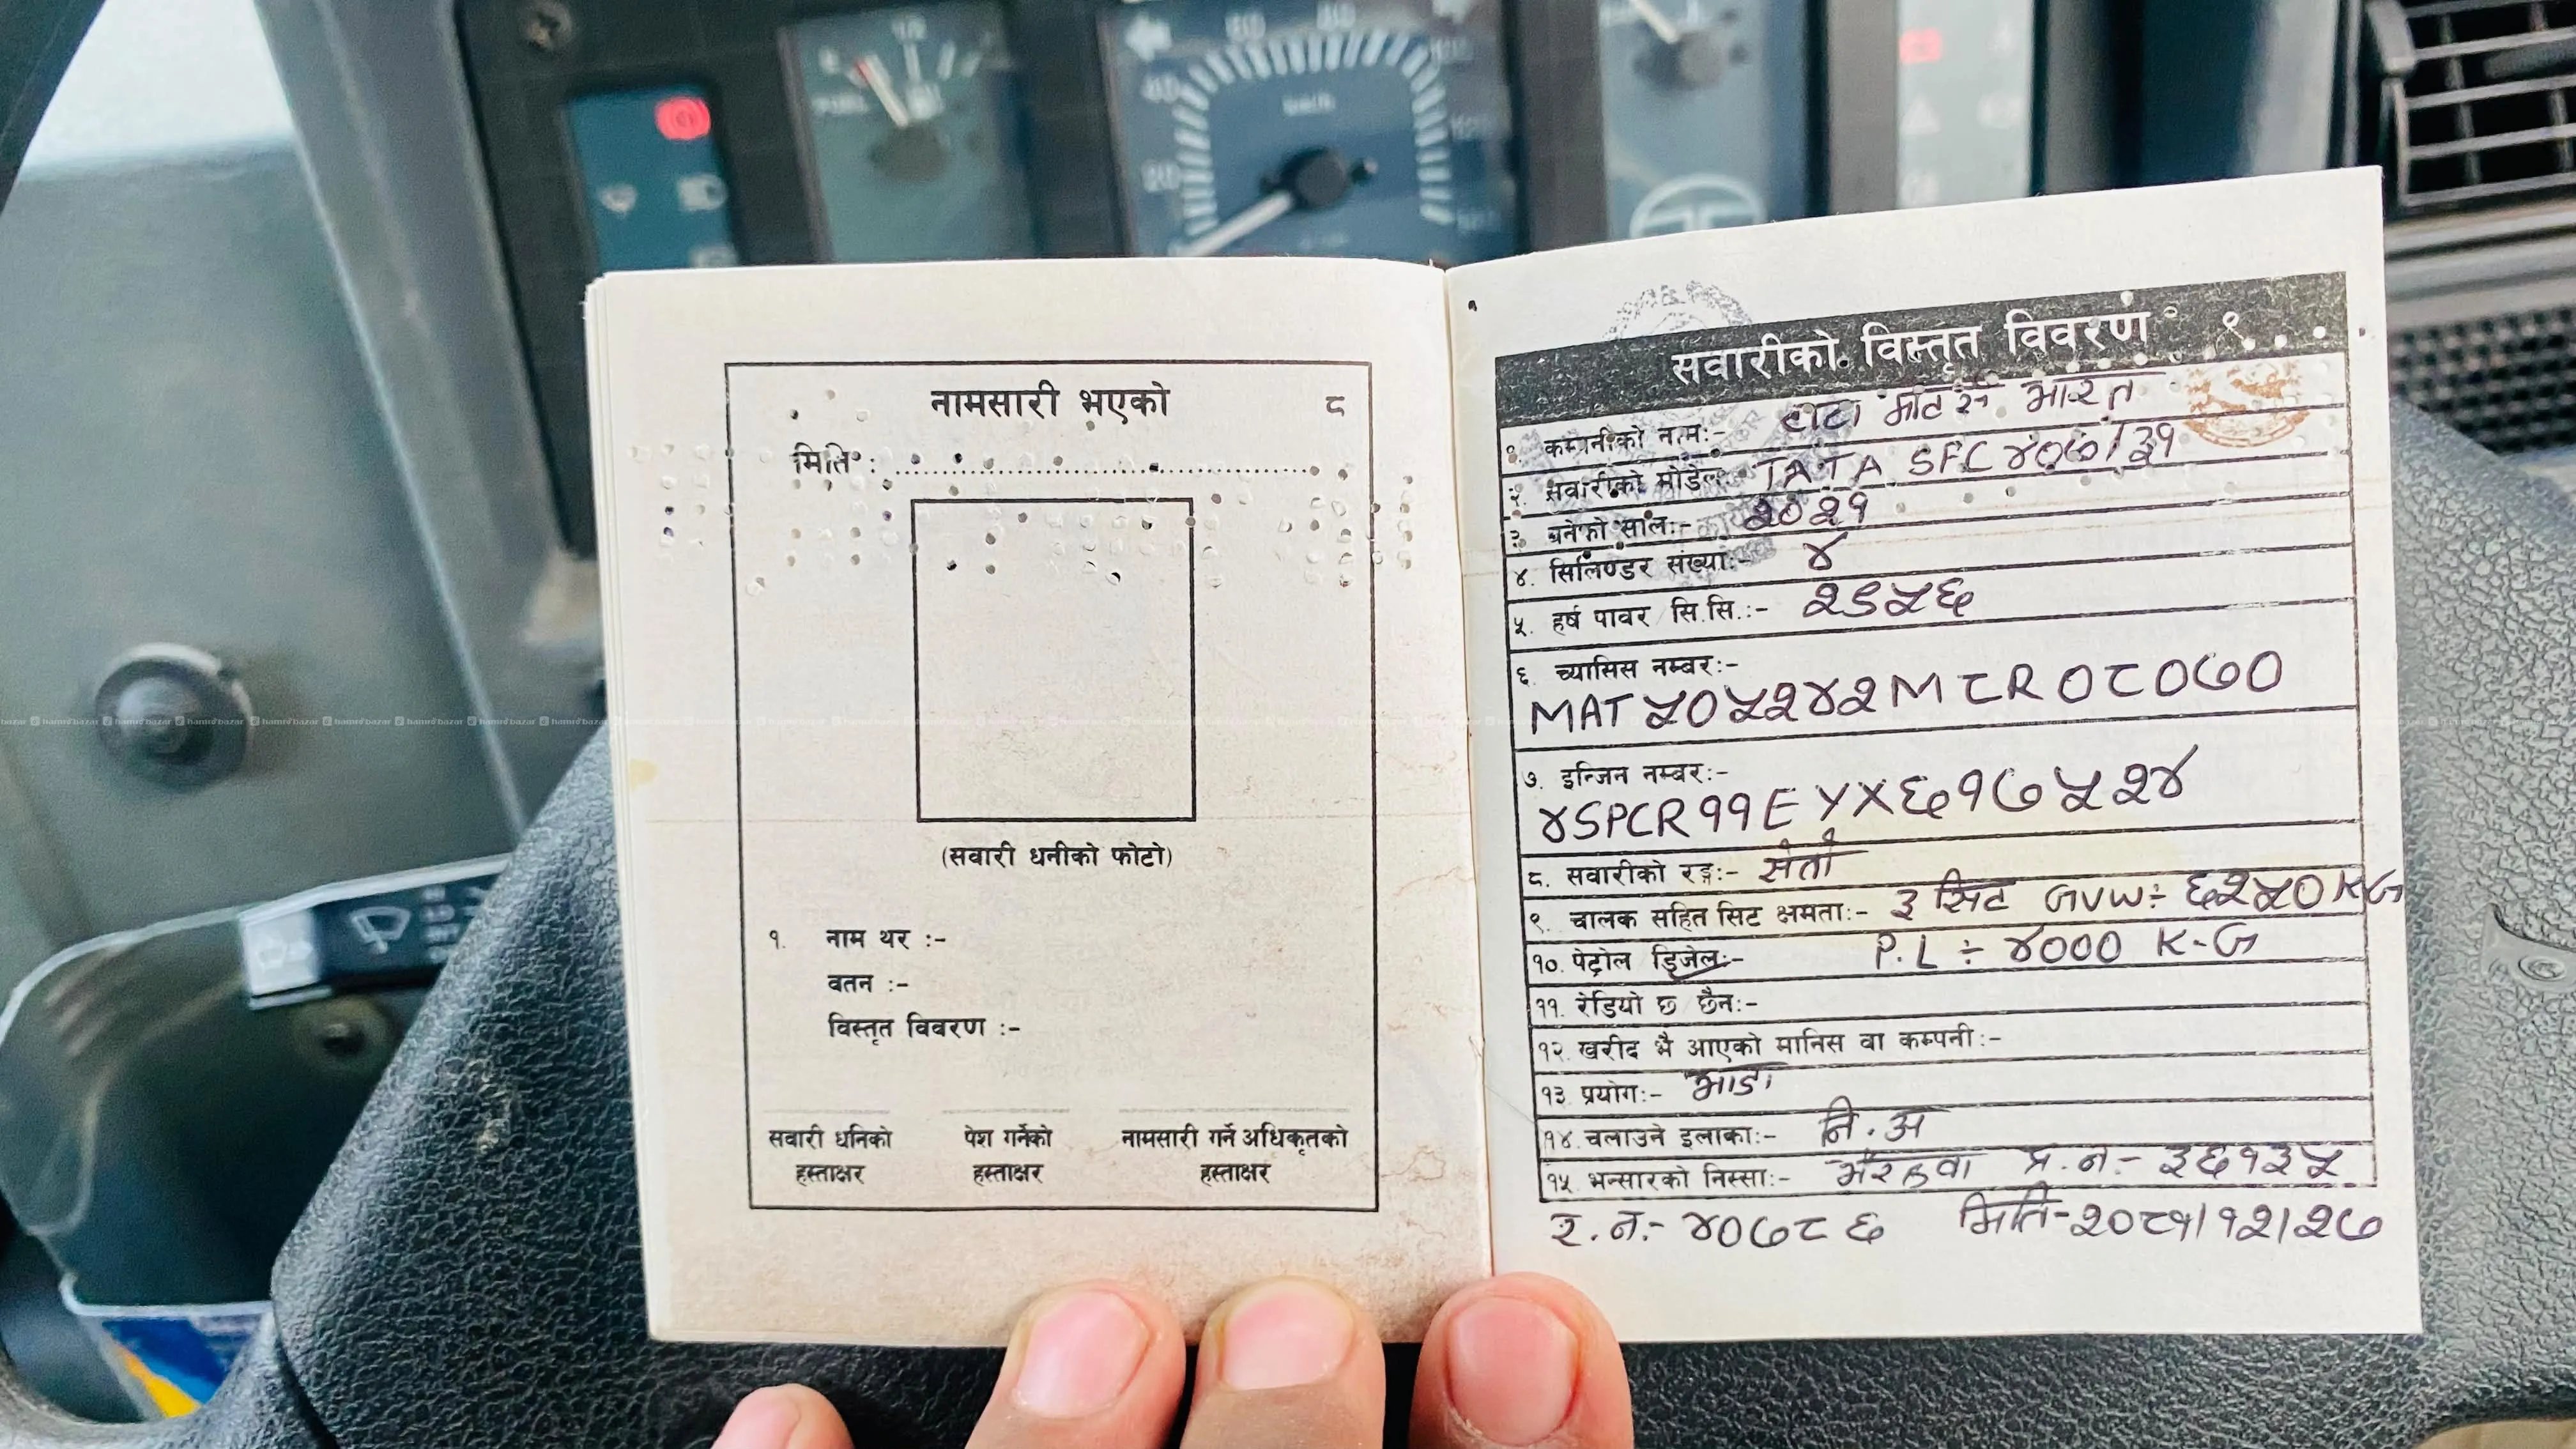 नामसारी भएको ८
मिति : ................................................
(सवारी धनीको फोटो)
१. नाम थर :-
वतन :-
विस्तृत विवरण :-
सवारी धनिको हस्ताक्षर
पेश गर्नेको हस्ताक्षर
नामसारी गर्ने अधिकृतको हस्ताक्षर
सवारीको विस्तृत विवरण ९
१. कम्पनीको नाम:- टाटा मोटर्स भारत
२. सवारीको मोडेल:- TATA SFC ४०७/३१
३. बनेको साल:- २०२१
४. सिलिण्डर संख्या:- ४
५. हर्ष पावर सि.सि.:- २९५६
६. च्यासिस नम्बर:-
MAT ५०५२४२M८R०८०७०
७. इन्जिन नम्बर:-
४SPCR११EYX६१७५२४
८. सवारीको रङ्ग:- सेतो
९. चालक सहित सिट क्षमता:- ३ सिट GVW ÷ ६२५० KG
१०. पेट्रोल डिजेल:- P.L ÷ ४००० K-G
११. रेडियो छ छैन:-
१२. खरीद भै आएको मानिस वा कम्पनी:-
१३ प्रयोग:- भाडा
१४. चलाउने इलाका:- नि.अ
१५. भन्सारको निस्सा:- भैरहवा प्र.न.- ३६१३५
र.न.- ४०७८६ मिति- २०८१/१२/२७
FUEL
1/2
20
40
60
80
km/h
hamro bazar